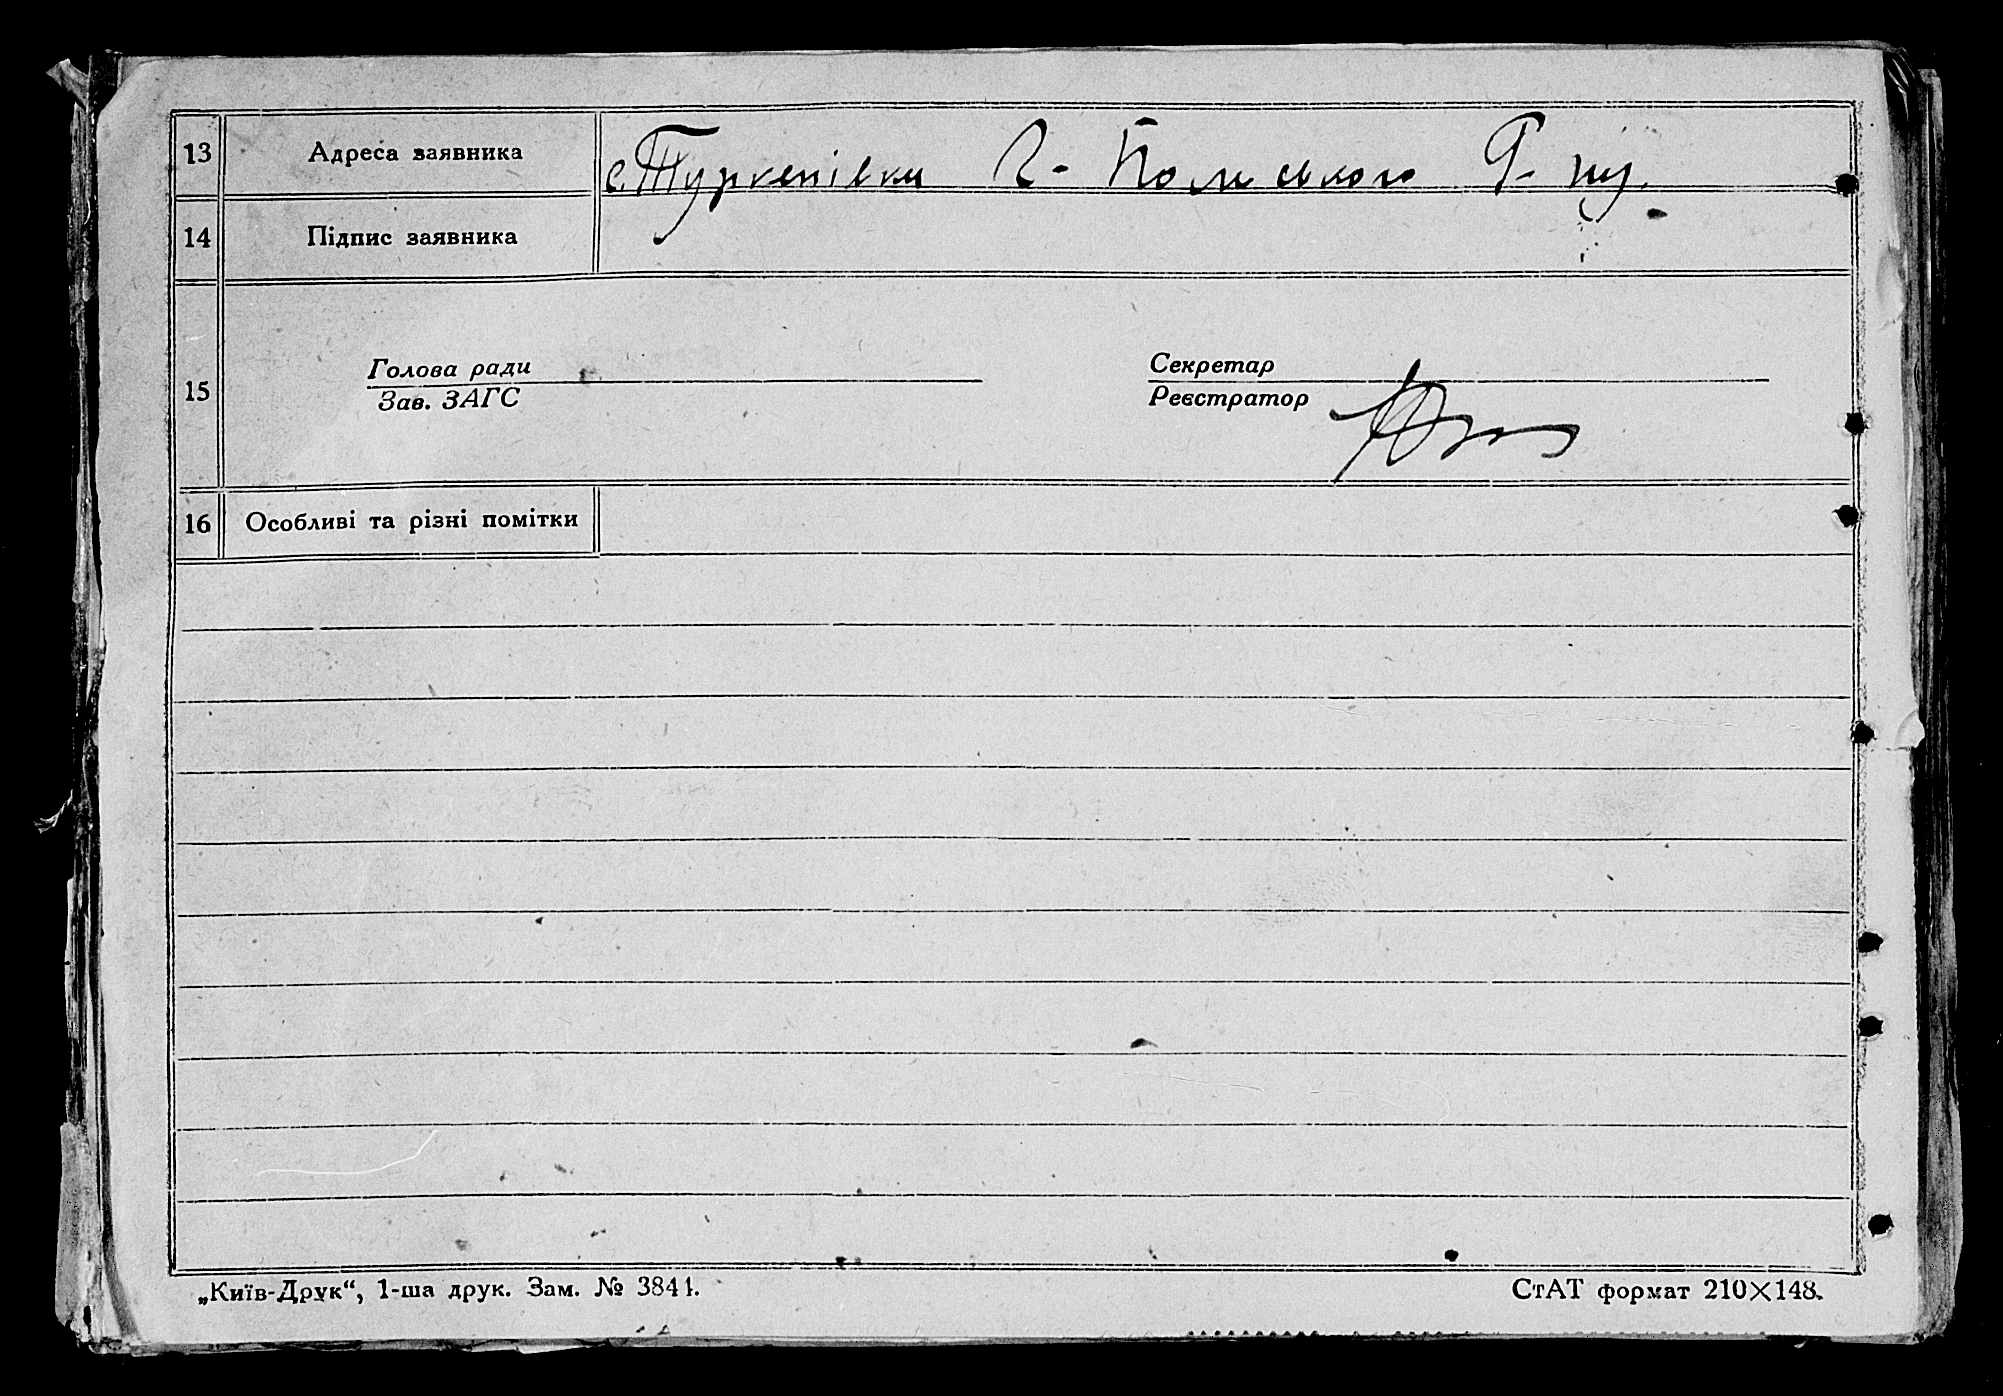 13 Адреса заявника с. Туркенівки Г-Польського Р-ну.
14 Підпис заявника
15
Голова ради Секретар
Зав. ЗАГС Реєстратор
16 Особливі та різні помітки
„Київ-Друк“, 1-ша друк. Зам. № 3841. СтАТ формат 210×148.